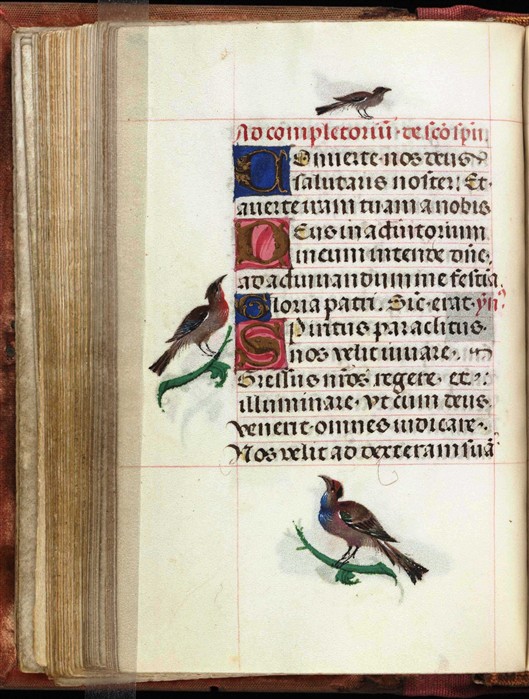 Ad completoriū · de scō spū
Conuerte nos deus
salutaris noster: Et·
auerte iram tuam a nobis
Deus in adiutorium
meum intende dñe·
ad adiuuandum me festia
Gloria patri. Sic·erat· yñ
Spiritus paraclitus·
nos velit iuuare·
Gressus nr̄os regere· et·
illuminare· Vt cum deus
venerit· omnes iudicare·
Nos velit ad dexteram suā